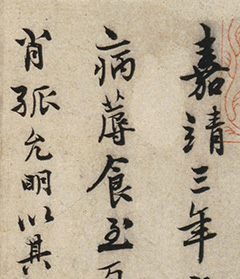 嘉靖三年
病蓐食至
肖孤允明以其